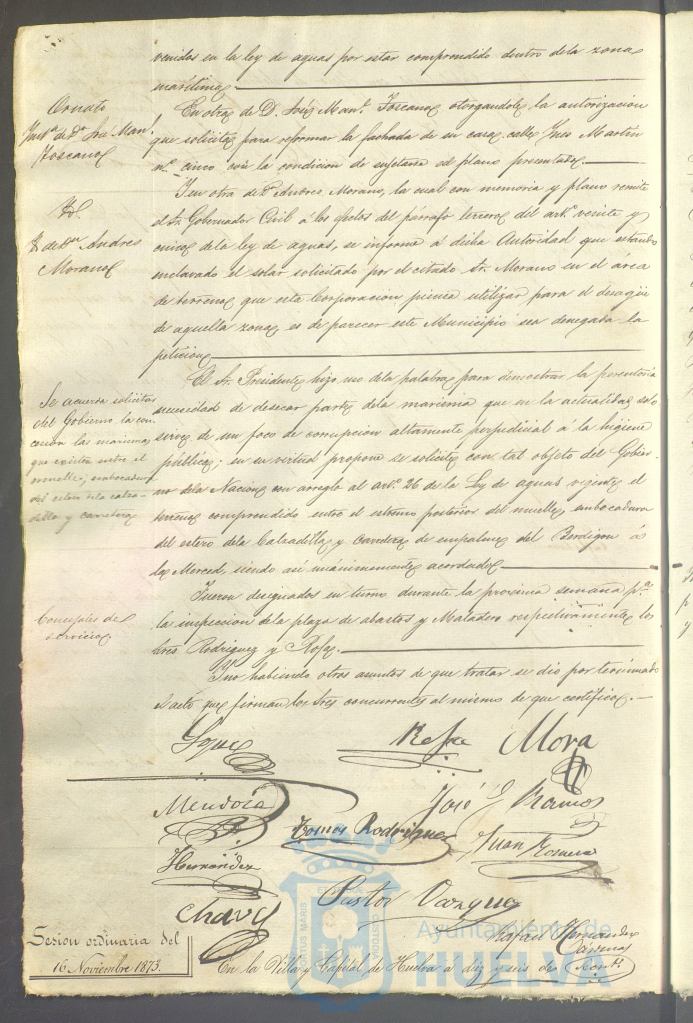 venidos en la ley de aguas por estar comprendido dentro de la zona
marítima
Ornato
Inst.ª de D.n José Man.l
Toscano
En otra de D. José Man.l Toscano otorgandole la autorización
que solicita para reformar la fachada de su casa calle Ynes Martin
n.º cinco con la condicion de sujetarse al plano presentado.
Yd.
Yd. de D.n Andres
Morano
Y en otra de D. Andres Morano, la cual con memoria y plano remite
el Sr. Gobernador Civil a los efectos del párrafo tercero del art.º veinte y
cinco de la ley de aguas, se informe á dicha Autoridad que estando
enclavado el solar solicitado por el citado Sr. Morano en el área
de terreno que esta Corporacion piensa utilizar para el desagüe
de aquella zona es de parecer este Municipio sea denegada la
peticion
Se acuerda solicitar
del Gobierno la con
cesion las marismas
que existen entre el
muelle, embocadura
del estero de la calza-
dilla y carretera
El Sr. Presidente hizo uso de la palabra para demostrar la perentoria
necesidad de desecar parte de la marisma que en la actualidad solo
sirve de un foco de corrupcion altamente perjudicial a la higiene
pública; en su virtud propone se solicite con tal objeto del Gobier-
no de la Nacion con arreglo al art.º 26 de la Ley de aguas vigente el
terreno comprendido entre el estremo posterior del muelle, embocadura
del estero de la Calzadilla y Carretera de empalme del Berdigon á
la Merced, siendo así unánimemente acordado
Concejales de
servicio
Fueron designados en turno durante la procsima semana p.ª
la inspeccion de la plaza de abastos y Matadero respectivamente los
Sres Rodriguez y Rofa.
Y no habiendo otros asuntos de que tratar se dio por terminado
el acto que firman los Sres concurrentes al mismo de que certifico.
Rofa Mora
Mendoza José Ramos
Tomas Rodriguez Juan Romero
Hernandez
Pastor Vazquez
Chaves
Rafael Hernandez
Sesion ordinaria del
16 Noviembre 1873.
En la Villa y Capital de Huelva á diez y seis de Nov.e
Ayuntamiento de
HUELVA
PORTUS MARIS
CUSTODIA